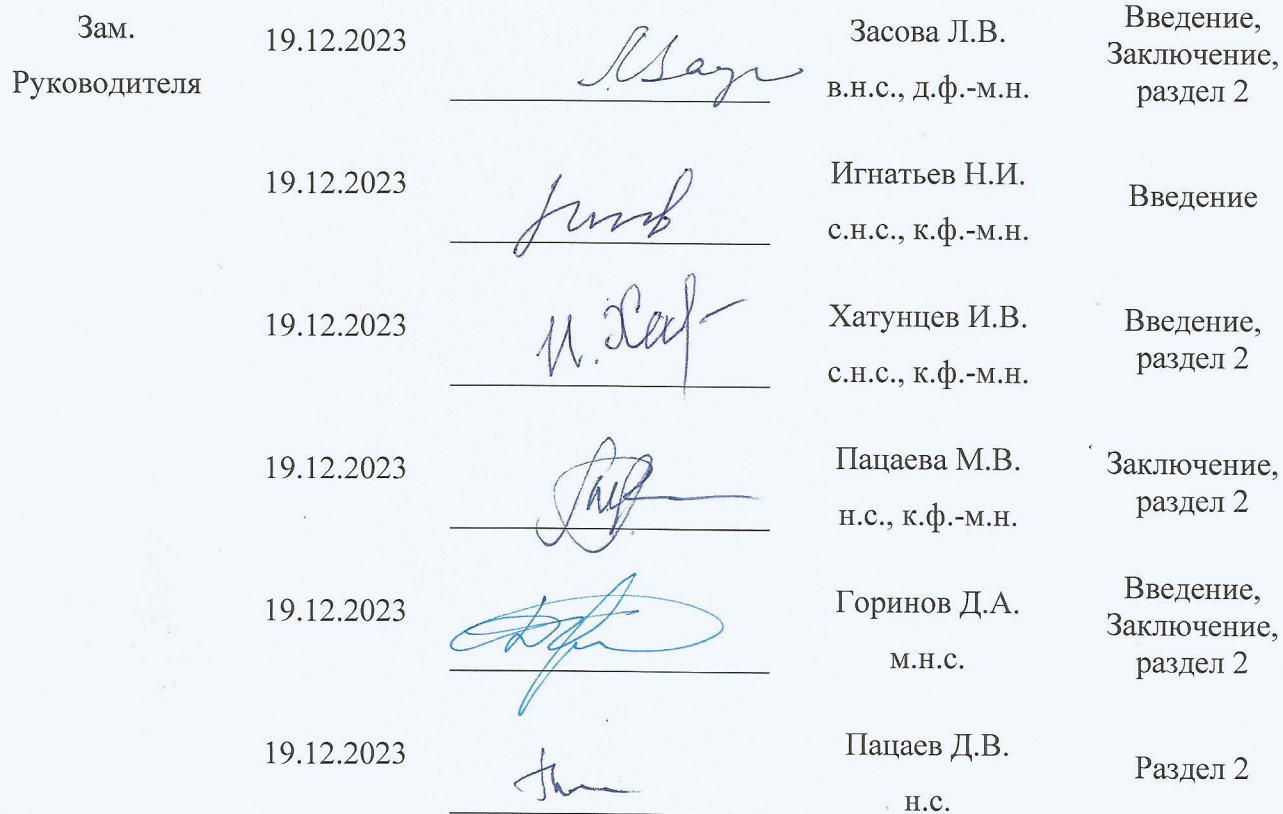 Зам.
Руководителя
19.12.2023
Засова Л.В.
в.н.с., д.ф.-м.н.
Введение,
Заключение,
раздел 2
19.12.2023
Игнатьев Н.И.
с.н.с., к.ф.-м.н.
Введение
19.12.2023
И. Хат
Хатунцев И.В.
с.н.с., к.ф.-м.н.
Введение,
раздел 2
19.12.2023
Пацаева М.В.
н.с., к.ф.-м.н.
Заключение,
раздел 2
19.12.2023
Горинов Д.А.
м.н.с.
Введение,
Заключение,
раздел 2
19.12.2023
Пацаев Д.В.
н.с.
Раздел 2